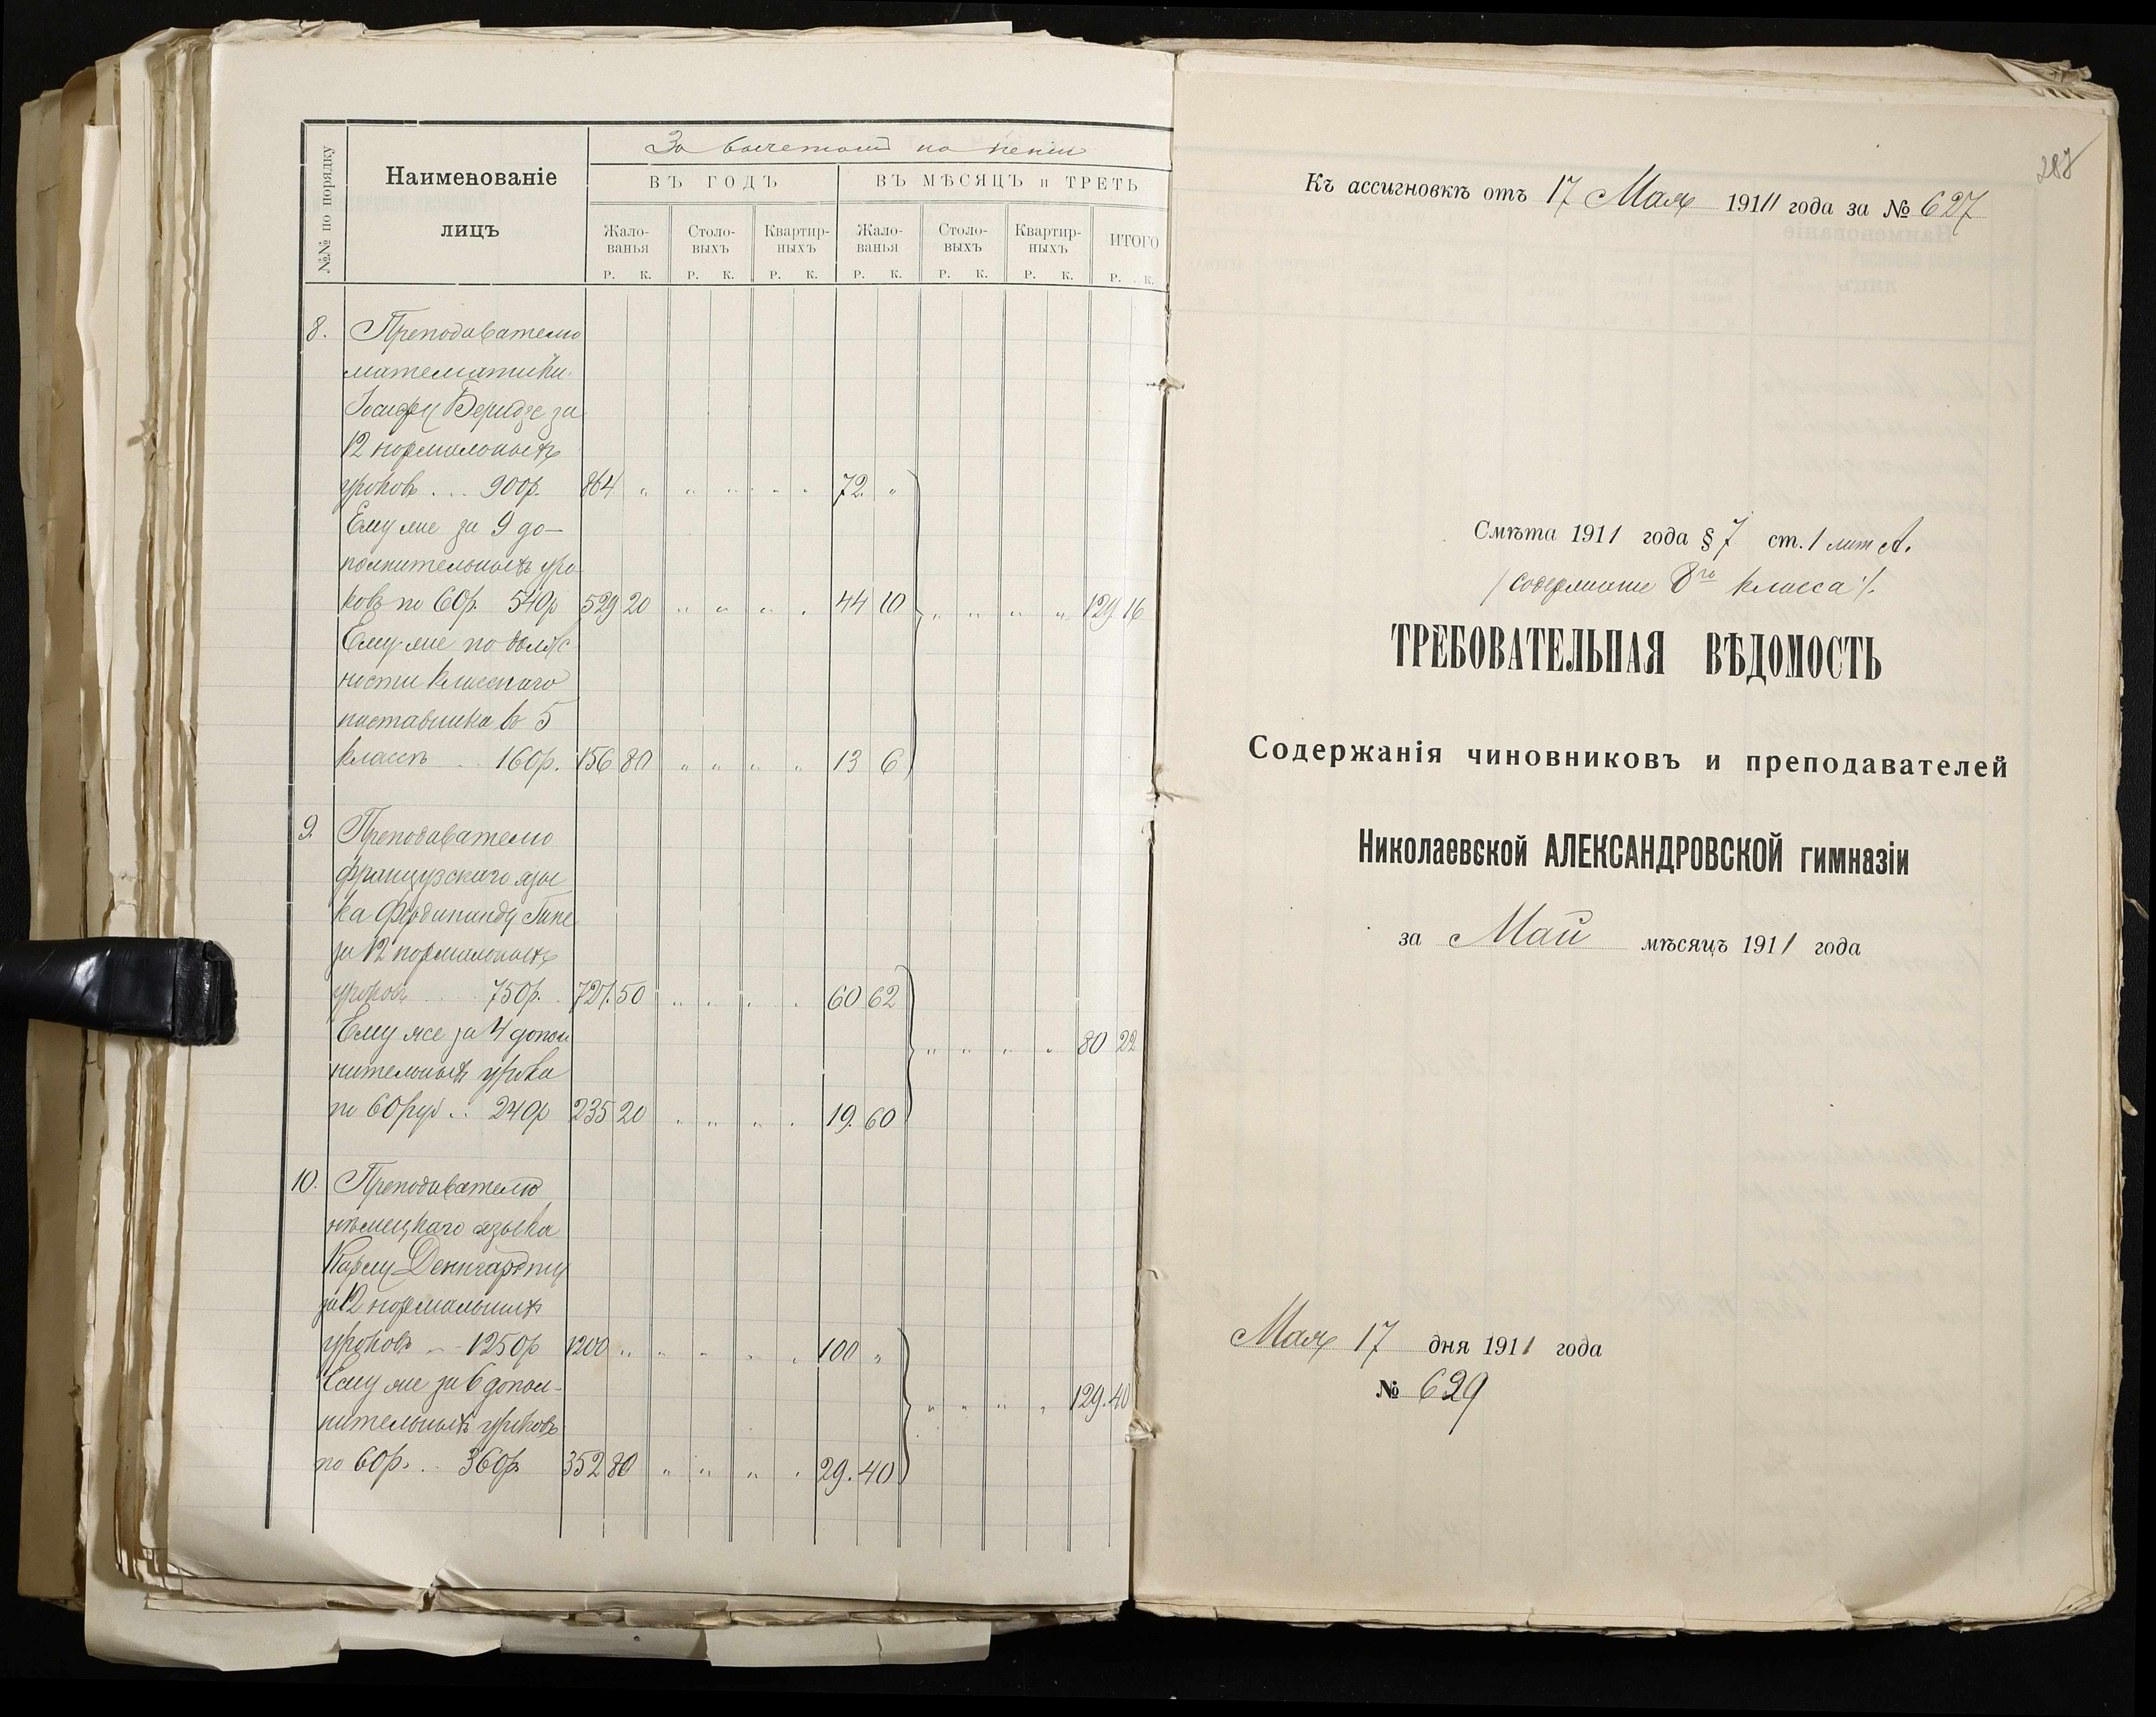 №№ по порядку
Наименованіе
лицъ
За вычетомъ на пенсію
ВЪ ГОДЪ
ВЪ МѢСЯЦЪ и ТРЕТЬ
Жало-
ванья
Столо-
выхъ
Квартир-
ныхъ
Жало-
ванья
Столо-
выхъ
Квартир-
ныхъ
ИТОГО
Р. К. Р. К. Р. К. Р. К. Р. К. Р. К. Р. К.
8. Преподавателю
математики
Іосифу Беридзе за
12 нормальныхъ
уроковъ . . . 900р. 864 " " " " " 72 "
Ему же за 9 до-
полнительныхъ уро
ковъ по 60р. 540р 529 20 " " " " 44 10 " " " " 129 16
Ему-же по долж
ности класснаго
наставника въ 5
классѣ . . 160р. 156 80 " " " " 13 6
9. Преподавателю
французскаго язы
ка Фердинанду
за 12 нормальныхъ
уроковъ . . 750р. 727. 50 " " " " 60 62
Ему же за 4 допол " " " " 80 22
нительныхъ урока
по 60 руб . . 240р 235 20 " " " " 19. 60
10. Преподавателю
нѣмецкаго языка
Карлу Денгардту
за 12 нормальныхъ
уроковъ - - 1250р 1200 " " " " " 100 "
Ему же за 6 допол- " " " " 129. 40
нительныхъ уроковъ
по 60р. . . 360р. 352 80 " " " " 29. 40
287
Къ ассигновкѣ отъ 17 Мая 1911 года за № 627
Смѣта 1911 года § 7 ст. 1 лит А.
/содержаніе 8го класса/.
ТРЕБОВАТЕЛЬНАЯ ВѢДОМОСТЬ
Содержанія чиновниковъ и преподавателей
Николаевской АЛЕКСАНДРОВСКОЙ гимназіи
за Май мѣсяцъ 1911 года
Мая 17 дня 1911 года
№ 629